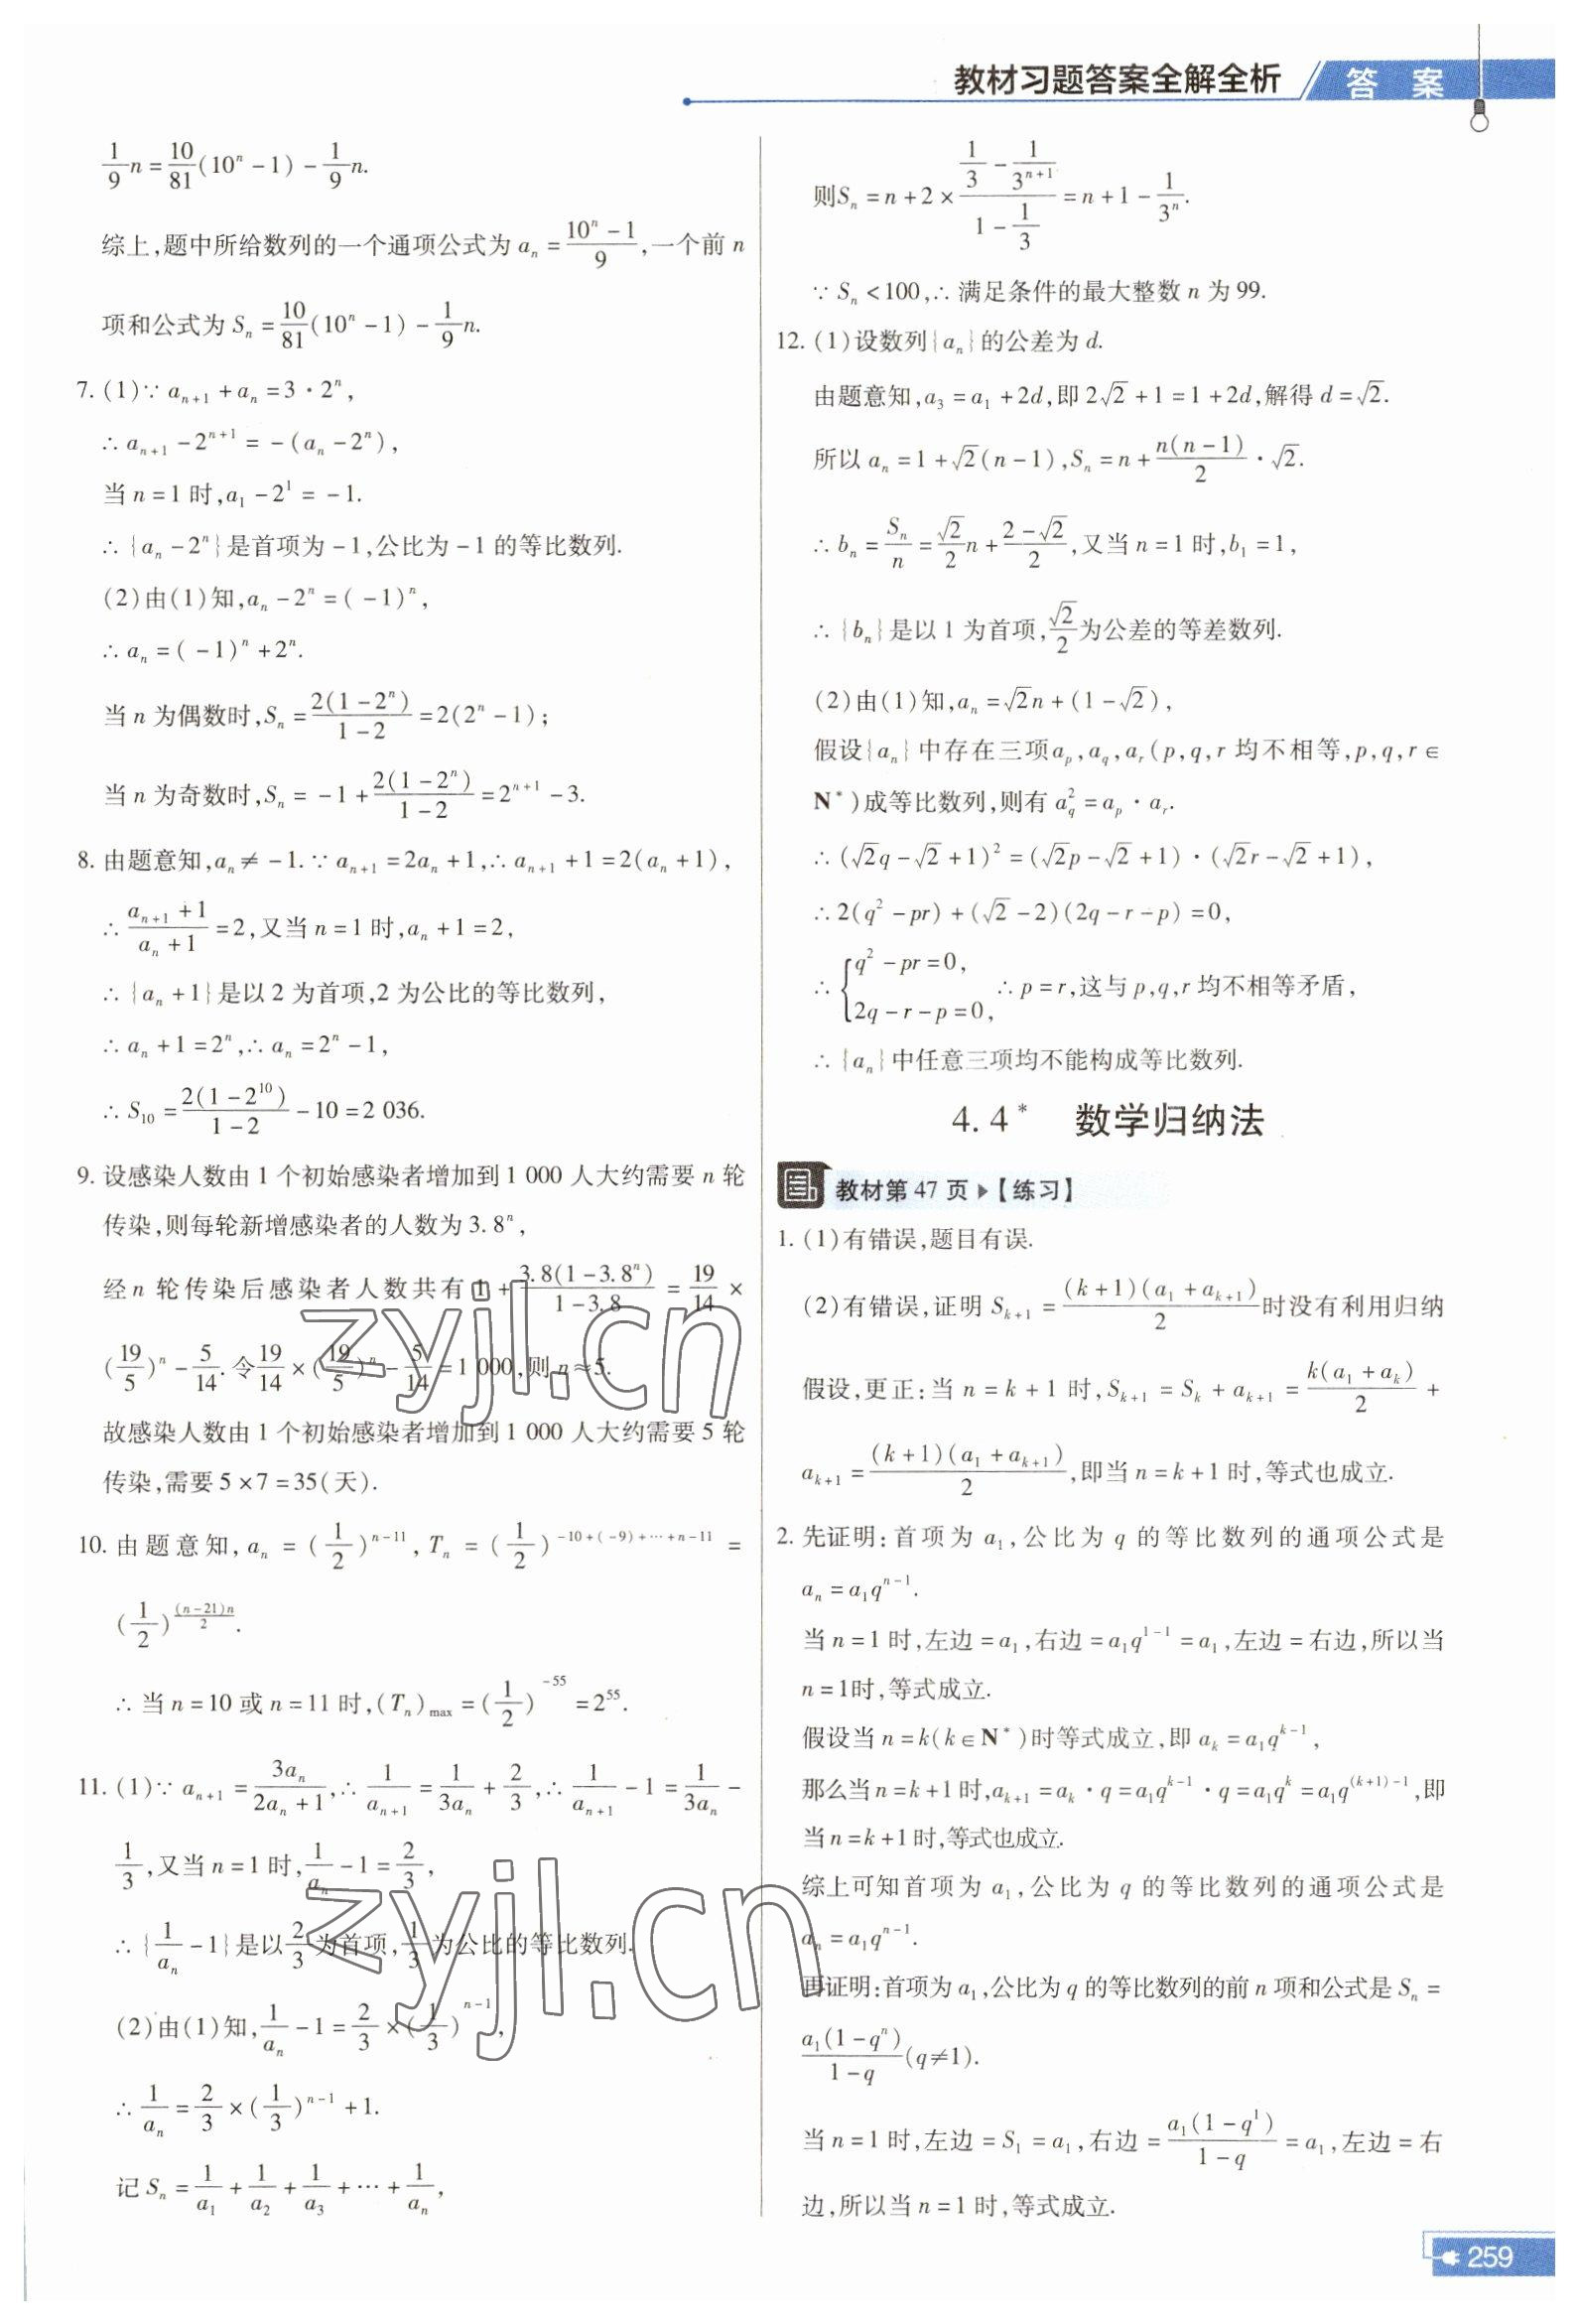 教材习题答案全解全析 答 案
1/9 n = 10/81(10ⁿ - 1) - 1/9 n.
综上,题中所给数列的一个通项公式为 aₙ = (10ⁿ - 1)/9,一个前 n
项和公式为 Sₙ = 10/81(10ⁿ - 1) - 1/9 n.
7. (1)∵ aₙ₊₁ + aₙ = 3 · 2ⁿ,
∴ aₙ₊₁ - 2ⁿ⁺¹ = -(aₙ - 2ⁿ),
当 n = 1 时,a₁ - 2¹ = -1.
∴ {aₙ - 2ⁿ}是首项为 -1,公比为 -1 的等比数列.
(2)由(1)知,aₙ - 2ⁿ = (-1)ⁿ,
∴ aₙ = (-1)ⁿ + 2ⁿ.
当 n 为偶数时,Sₙ = 2(1 - 2ⁿ)/(1 - 2) = 2(2ⁿ - 1);
当 n 为奇数时,Sₙ = -1 + 2(1 - 2ⁿ)/(1 - 2) = 2ⁿ⁺¹ - 3.
8. 由题意知,aₙ ≠ -1. ∵ aₙ₊₁ = 2aₙ + 1,∴ aₙ₊₁ + 1 = 2(aₙ + 1),
∴ (aₙ₊₁ + 1)/(aₙ + 1) = 2,又当 n = 1 时,aₙ + 1 = 2,
∴ {aₙ + 1}是以 2 为首项,2 为公比的等比数列,
∴ aₙ + 1 = 2ⁿ,∴ aₙ = 2ⁿ - 1,
∴ S₁₀ = 2(1 - 2¹⁰)/(1 - 2) - 10 = 2 036.
9. 设感染人数由 1 个初始感染者增加到 1 000 人大约需要 n 轮
传染,则每轮新增感染者的人数为 3.8ⁿ,
经 n 轮传染后感染者人数共有 1 + 3.8(1 - 3.8ⁿ)/(1 - 3.8) = 19/14 ×
(19/5)ⁿ - 5/14. 令 19/14 × (19/5)ⁿ - 5/14 = 1 000,则 n ≈ 5.
故感染人数由 1 个初始感染者增加到 1 000 人大约需要 5 轮
传染,需要 5 × 7 = 35(天).
10. 由题意知, aₙ = (1/2)^(n-11), Tₙ = (1/2)^(-10+(-9)+…+n-11) =
(1/2)^((n-21)n/2).
∴ 当 n = 10 或 n = 11 时,(Tₙ)max = (1/2)^(-55) = 2⁵⁵.
11. (1)∵ aₙ₊₁ = 3aₙ/(2aₙ + 1),∴ 1/aₙ₊₁ = 1/(3aₙ) + 2/3,∴ 1/aₙ₊₁ - 1 = 1/(3aₙ) -
1/3,又当 n = 1 时,1/aₙ - 1 = 2/3,
∴ {1/aₙ - 1}是以 2/3 为首项,1/3 为公比的等比数列.
(2)由(1)知,1/aₙ - 1 = 2/3 × (1/3)^(n-1),
∴ 1/aₙ = 2/3 × (1/3)^(n-1) + 1.
记 Sₙ = 1/a₁ + 1/a₂ + 1/a₃ + … + 1/aₙ,
则Sₙ = n + 2 × (1/3 - 1/3ⁿ⁺¹)/(1 - 1/3) = n + 1 - 1/3ⁿ.
∵ Sₙ < 100,∴ 满足条件的最大整数 n 为 99.
12. (1)设数列{aₙ}的公差为 d.
由题意知,a₃ = a₁ + 2d,即 2√2 + 1 = 1 + 2d,解得 d = √2.
所以 aₙ = 1 + √2(n - 1),Sₙ = n + n(n - 1)/2 · √2.
∴ bₙ = Sₙ/n = √2/2 n + (2 - √2)/2,又当 n = 1 时,b₁ = 1,
∴ {bₙ}是以 1 为首项,√2/2 为公差的等差数列.
(2)由(1)知,aₙ = √2n + (1 - √2),
假设{aₙ}中存在三项aₚ,a_q,aᵣ(p,q,r 均不相等,p,q,r ∈
N*)成等比数列,则有 a_q² = aₚ · aᵣ.
∴ (√2q - √2 + 1)² = (√2p - √2 + 1) · (√2r - √2 + 1),
∴ 2(q² - pr) + (√2 - 2)(2q - r - p) = 0,
∴ { q² - pr = 0, 2q - r - p = 0, ∴ p = r,这与 p,q,r 均不相等矛盾,
∴ {aₙ}中任意三项均不能构成等比数列.
4.4* 数学归纳法
教材第 47 页▶【练习】
1. (1)有错误,题目有误.
(2)有错误,证明 Sₖ₊₁ = (k + 1)(a₁ + aₖ₊₁)/2 时没有利用归纳
假设,更正:当 n = k + 1 时,Sₖ₊₁ = Sₖ + aₖ₊₁ = k(a₁ + aₖ)/2 +
aₖ₊₁ = (k + 1)(a₁ + aₖ₊₁)/2,即当 n = k + 1 时,等式也成立.
2. 先证明:首项为 a₁,公比为 q 的等比数列的通项公式是
aₙ = a₁qⁿ⁻¹.
当 n = 1 时,左边 = a₁,右边 = a₁q¹⁻¹ = a₁,左边 = 右边,所以当
n = 1时,等式成立.
假设当 n = k(k ∈ N*)时等式成立,即 aₖ = a₁qᵏ⁻¹,
那么当 n = k + 1 时,aₖ₊₁ = aₖ · q = a₁qᵏ⁻¹ · q = a₁qᵏ = a₁q⁽ᵏ⁺¹⁾⁻¹,即
当 n = k + 1 时,等式也成立.
综上可知首项为 a₁,公比为 q 的等比数列的通项公式是
aₙ = a₁qⁿ⁻¹.
再证明:首项为 a₁,公比为 q 的等比数列的前 n 项和公式是 Sₙ =
a₁(1 - qⁿ)/(1 - q) (q ≠ 1).
当 n = 1 时,左边 = S₁ = a₁,右边 = a₁(1 - q¹)/(1 - q) = a₁,左边 = 右
边,所以当 n = 1 时,等式成立.
259
zyjl.cn
zyjl.cn